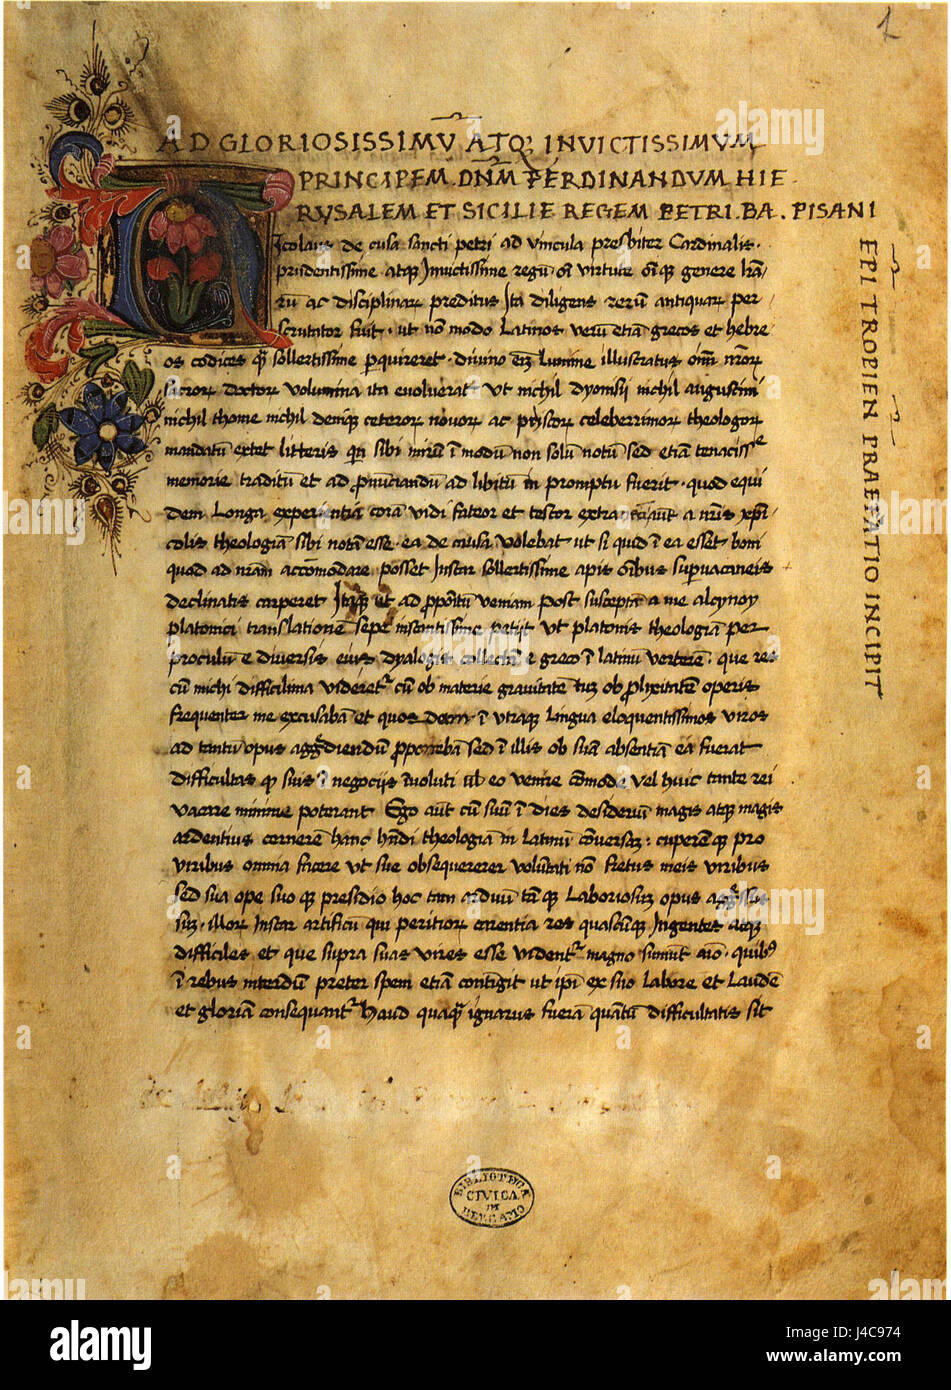 1
AD GLORIOSISSIMŪ ATQ; INVICTISSIMUM
PRINCIPEM. DN̄M FERDINANDUM HIE
RUSALEM ET SICILIE REGEM PETRI. BA. PISANI
EPI TROPIEN PRAEFATIO INCIPIT
Nicolaus de cusa sancti petri ad vincula presbiter Cardinalis.
prudentissime atq; Invictissime regū oī virtute oīq; genere
rū ac disciplinar preditus Ita diligens rerū antiquar per
scrutator fuit. ut nō modo Latinos verū etiā grecos et hebre
os codices q̄ sollertissime pquireret. divino Lumine illustratus
volumina ita evoluerat ut nichil dyonisii nichil augustini
nichil thome nichil deniq; ceteror novor ac celeberrimor theologor
mandatū extet litteris qn̄ sibi mirū ī modū non solū notū sed etiā tenacisse
memorie traditū et ad pnūciandū ad libitū in promptu fuerit. quod equi
dem Longa experientia corā vidi fateor et testor extra a nr̄is
colis theologiā sibi notā esse. ea de causa volebat ut si quid ī ea esset boni
quod ad nr̄am accōmodare posset Instar sollertissime apis oībus supvacaneis
declinatis carperet Itaq; ut ad ppositū veniam post susceptā a me alcynoy
platonici translationē sepe instantissime petiit ut platonis theologiā per
proculū e diversis eius dyalogis collectā e greco ī latinū verterē. que res
cū michi difficilima videret cū ob materie gravitatē tū ob plixitatē operis
frequenter me excusabā et quosdam ī utraq; lingua eloquentissimos viros
ad tantū opus aggrediendū pponebā sed ī illis ob suā absentiā ea fuerat
difficultas q suis ī negociis īvoluti eo venire cōmode vel huic tante rei
vacare minime poterant Ego aūt cū suū ī dies desideriū magis atq; magis
ardentius cernerē hanc theologiā in Latinū cōversā. cuperēq; pro
viribus omnia facere ut sue obsequerer volūtati nō fretus meis viribus
sed sua ope suo q; presidio hoc tam arduū tāq; Laboriosū opus
illor Instar artificū qui peritior carentia res quascūq; Ingentes atq;
difficiles et que supra suas vires esse vident magno sumūt aīo. quibus
ī rebus interdū preter spem etiā contigit ut ipi ex suo Labore et Laudē
et gloriā consequant Haud quaq̄ ignarus fuerā quantū difficultatis sit
BIBLIOTECA
CIVICA
DI
BERGAMO
alamy
alamy
Image ID: J4C974
www.alamy.com